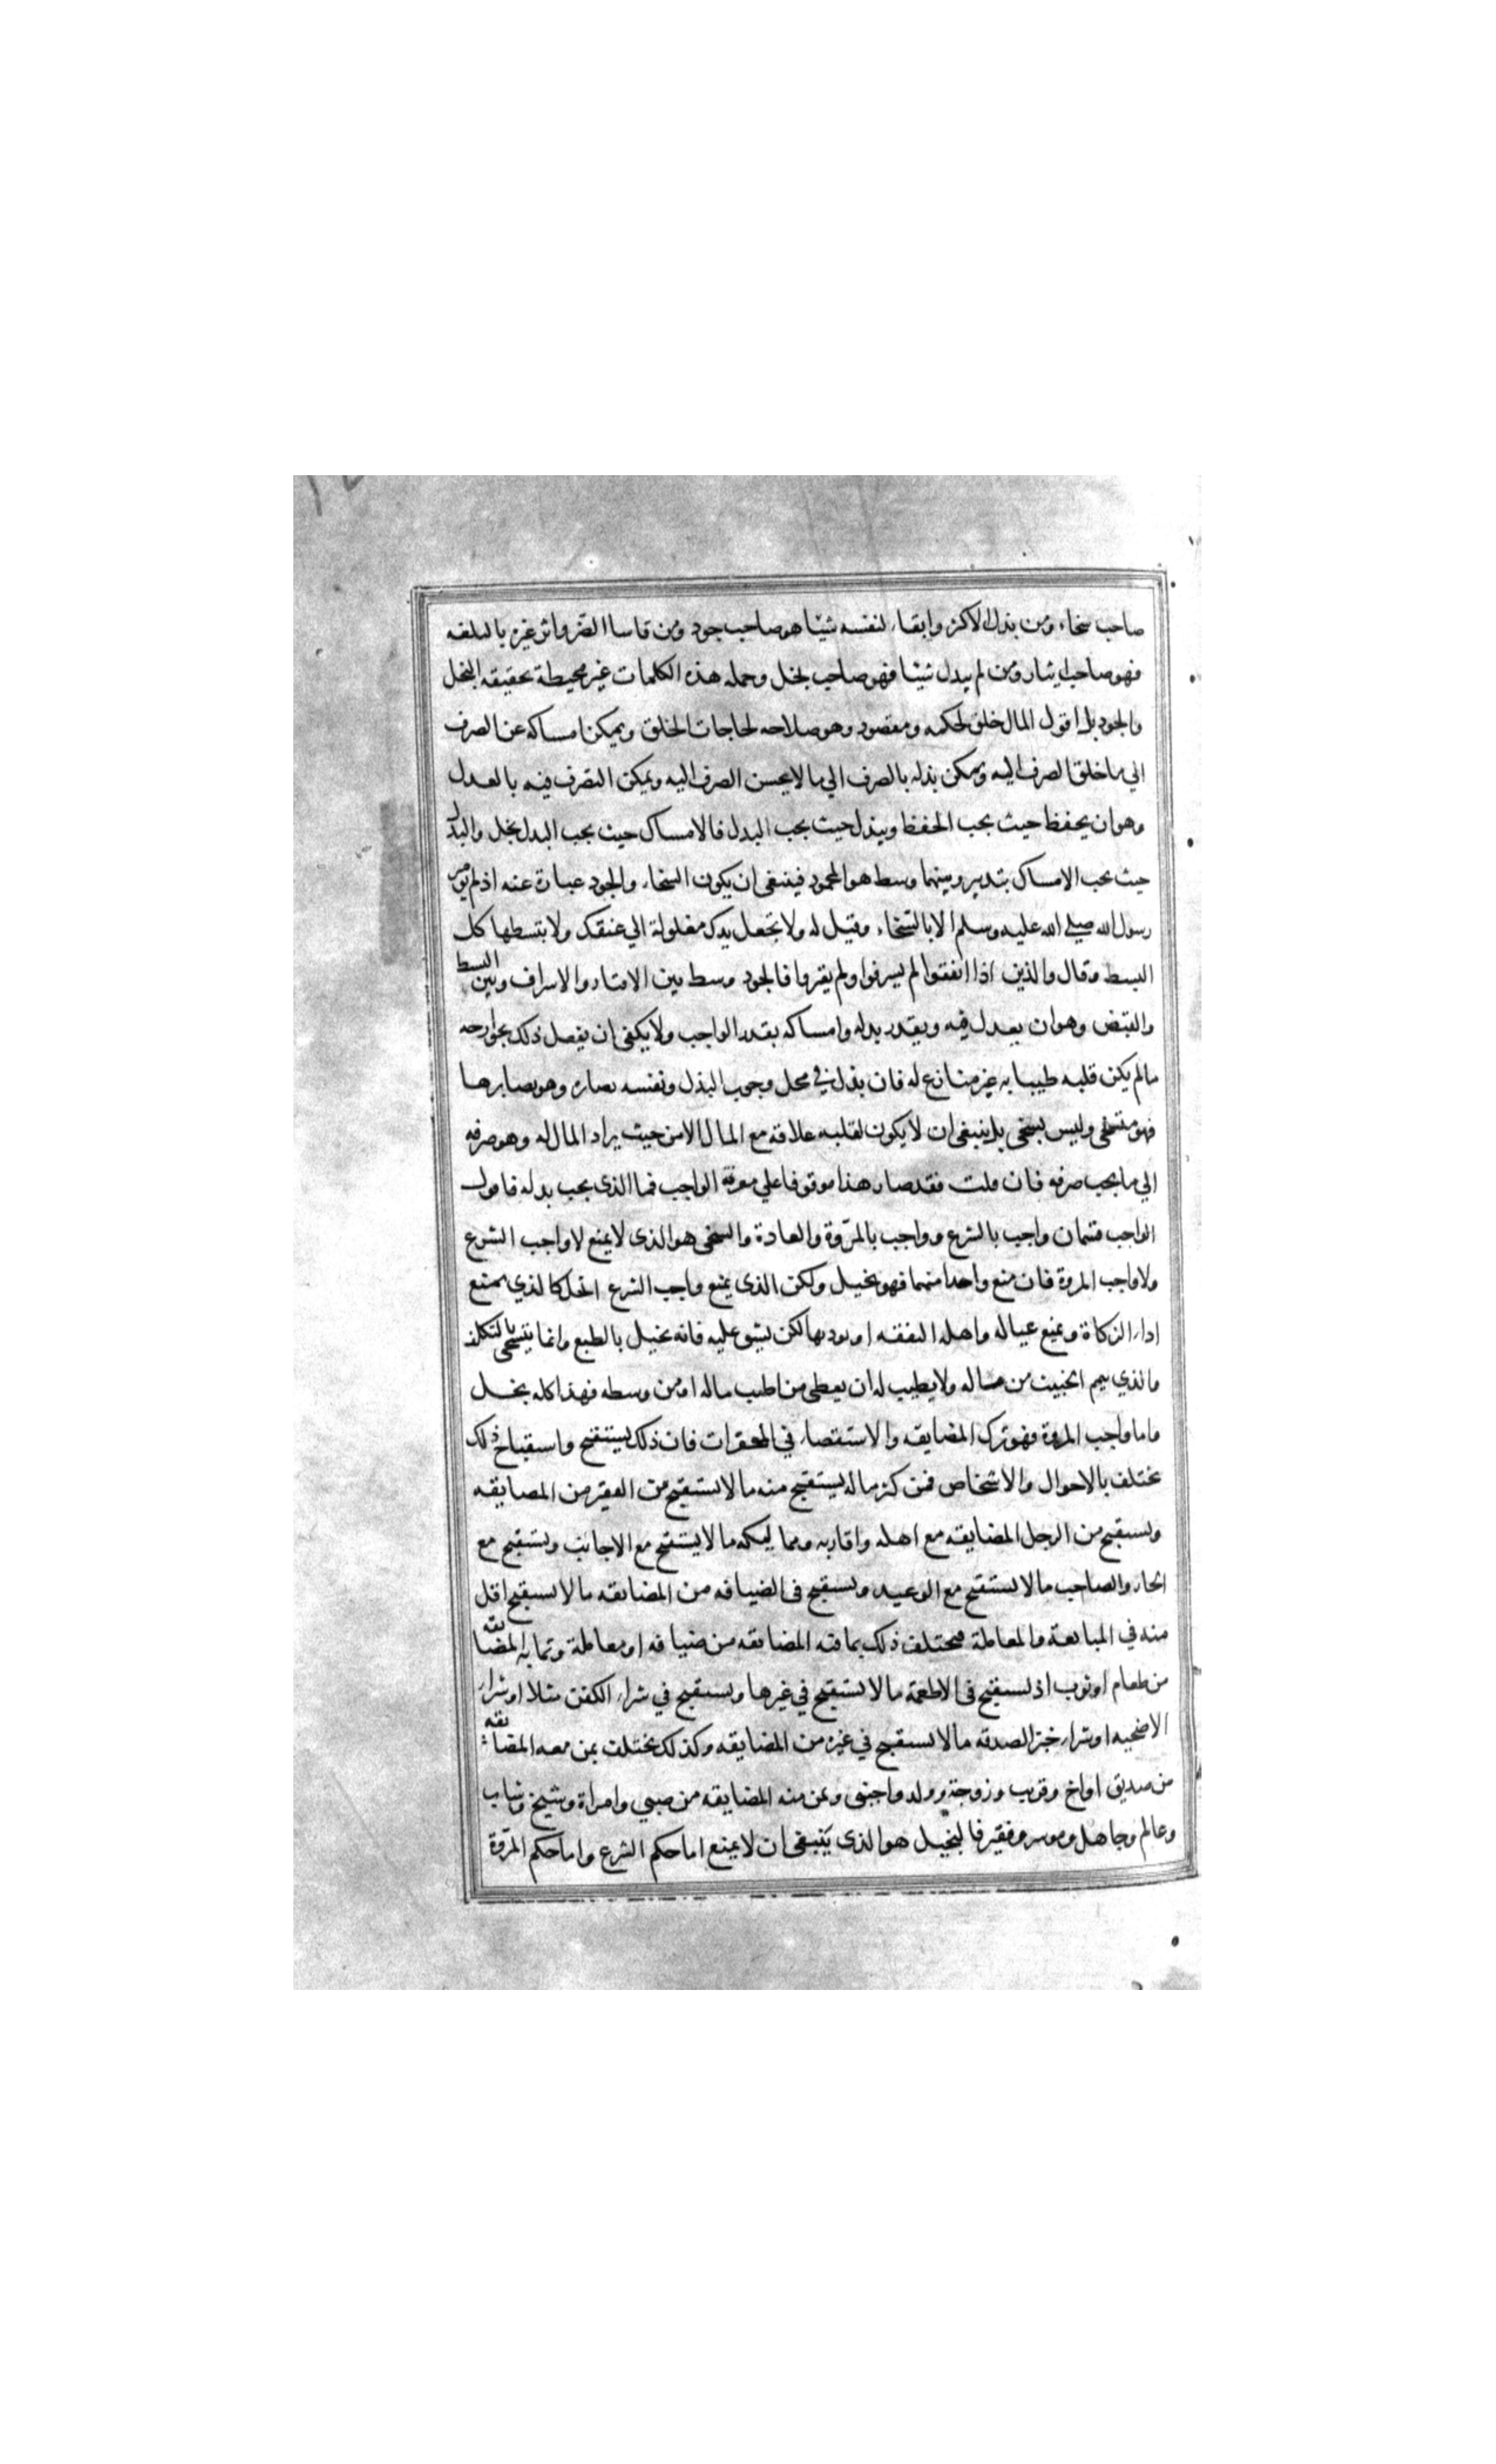 صاحب سخاء ومن بذل الاكثر وابقاء لنفسه شيئا هو صاحب جود ومن قاسا الضر واثر غيره بالبلغه
فهو صاحب ايثار ومن لم يبدل شيئا فهو صاحب بخل وجمله هذه الكلمات غير محيطة بحقيقه البخل
والجود بل اقول المال خلق لحكمه ومقصود وهو صلاحه لحاجات الخلق ويمكن امساكه عن الصرف
الي ما خلق الصرف اليه ويمكن بذله بالصرف الي ما لا يحسن الصرف اليه ويمكن التصرف فيه بالعدل
وهو ان يحفظ حيث يجب الحفظ ويبذل حيث يجب البدل فالامساك حيث يجب البدل بخل والبدل
حيث يجب الامساك تبدير وبينهما وسط هو المحمود فينبغى ان يكون السخاء والجود عبارة عنه اذ لم يومر
رسول الله صلي الله عليه وسلم الا بالسخاء وقيل له ولا تجعل يدك مغلولة الي عنقك ولا تبسطها كل
البسط وقال والذين اذا انفقوا لم يسرفوا ولم يقتروا فالجود وسط بين الاقتار والاسراف وبين البسط
والقبض وهو ان يعدل فيه ويقدر بدله وامساكه بقدر الواجب ولا يكفى ان يفعل ذلك بجوارحه
مالم يكن قلبه طيبا به غير منازع له فان بذل في محل وجوب البذل ونفسه تنازعه وهو يصابرها
فهو متسخى وليس بسخى بل ينبغى ان لا يكون لقلبه علاقة مع المال الا من حيث يراد المال له وهو صرفه
الي ما يجب صرفه فان قلت فقد صار هذا موقوفا علي معرفة الواجب فما الذى يجب بدله فاقول
الواجب قسمان واجب بالشرع وواجب بالمروة والعادة والسخى هو الذى لا يمنع لا واجب الشرع
ولا واجب المروة فان منع واحدا منهما فهو بخيل ولكن الذى يمنع واجب الشرع ابخل كالذي يمنع
اداء الزكاة ويمنع عياله واهله النفقه او يوديها لكن يشق عليه فانه بخيل بالطبع وانما يتسخى بالتكلف
والذي يتيمم الخبيث من ماله ولا يطيب له ان يعطى من اطيب ماله او من وسطه فهذا كله بخل
واما واجب المروة فهو ترك المضايقه والاستقصاء في المحقرات فان ذلك يستقبح واستقباح ذلك
يختلف بالاحوال والاشخاص فمن كثر ماله يستقبح منه ما لا يستقبح من الفقير من المضايقه
ويستقبح من الرجل المضايقه مع اهله واقاربه ومماليكه ما لا يستقبح مع الاجانب ويستقبح مع
الجار والصاحب ما لا يستقبح مع البعيد ويستقبح فى الضيافه من المضايقه ما لا يستقبح اقل
منه في المبايعة والمعاملة فيختلف ذلك بما فيه المضايقه من ضيافه او معاملة وبما به المضايقه
من طعام او ثوب اذ يستقبح فى الاطعمة ما لا يستقبح في غيرها ويستقبح في شراء الكفن مثلا او شراء
الاضحيه او شراء خبز الصدقه ما لا يستقبح في غيره من المضايقه وكذلك يختلف بمن معه المضايقه
من صديق او اخ وقريب وزوجة وولد واجنبى وبمن منه المضايقه من صبي وامراة وشيخ وشاب
وعالم وجاهل وموسر وفقير فالبخيل هو الذى ينبغى ان لا يمنع اما حكم الشرع واما حكم المروة